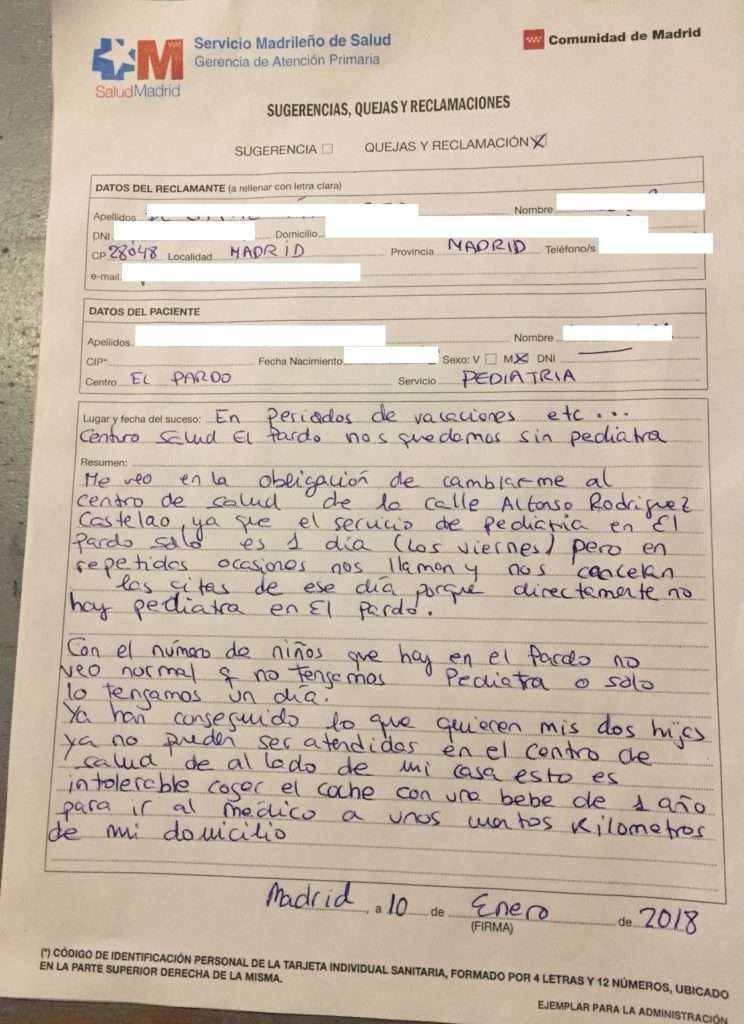 Servicio Madrileño de Salud
Gerencia de Atención Primaria
SaludMadrid
Comunidad de Madrid
SUGERENCIAS, QUEJAS Y RECLAMACIONES
SUGERENCIA □ QUEJAS Y RECLAMACIÓN X
DATOS DEL RECLAMANTE (a rellenar con letra clara)
Apellidos Nombre
DNI Domicilio
CP 28048 Localidad MADRID Provincia MADRID Teléfono/s
e-mail
DATOS DEL PACIENTE
Apellidos Nombre
CIP* Fecha Nacimiento Sexo: V □ M X DNI —
Centro EL PARDO Servicio PEDIATRIA
Lugar y fecha del suceso: En periodos de vacaciones etc...
Centro salud El Pardo nos quedamos sin pediatra
Resumen:
Me veo en la obligación de cambiarme al
centro de salud de la calle Alfonso Rodriguez
Castelao, ya que el servicio de pediatria en El
pardo solo es 1 día (los viernes) pero en
repetidas ocasiones nos llaman y nos cancelan
las citas de ese día porque directamente no
hay pediatra en El Pardo.
Con el número de niños que hay en el Pardo no
veo normal q no tengamos Pediatra o solo
lo tengamos un día.
Ya han conseguido lo que quieren mis dos hijas
ya no pueden ser atendidas en el centro de
salud de al lado de mi casa esto es
intolerable coger el coche con una bebe de 1 año
para ir al médico a unos cuantos Kilometros
de mi domicilio
Madrid, a 10 de Enero de 2018
(FIRMA)
(*) CÓDIGO DE IDENTIFICACIÓN PERSONAL DE LA TARJETA INDIVIDUAL SANITARIA, FORMADO POR 4 LETRAS Y 12 NÚMEROS, UBICADO
EN LA PARTE SUPERIOR DERECHA DE LA MISMA.
EJEMPLAR PARA LA ADMINISTRACIÓN